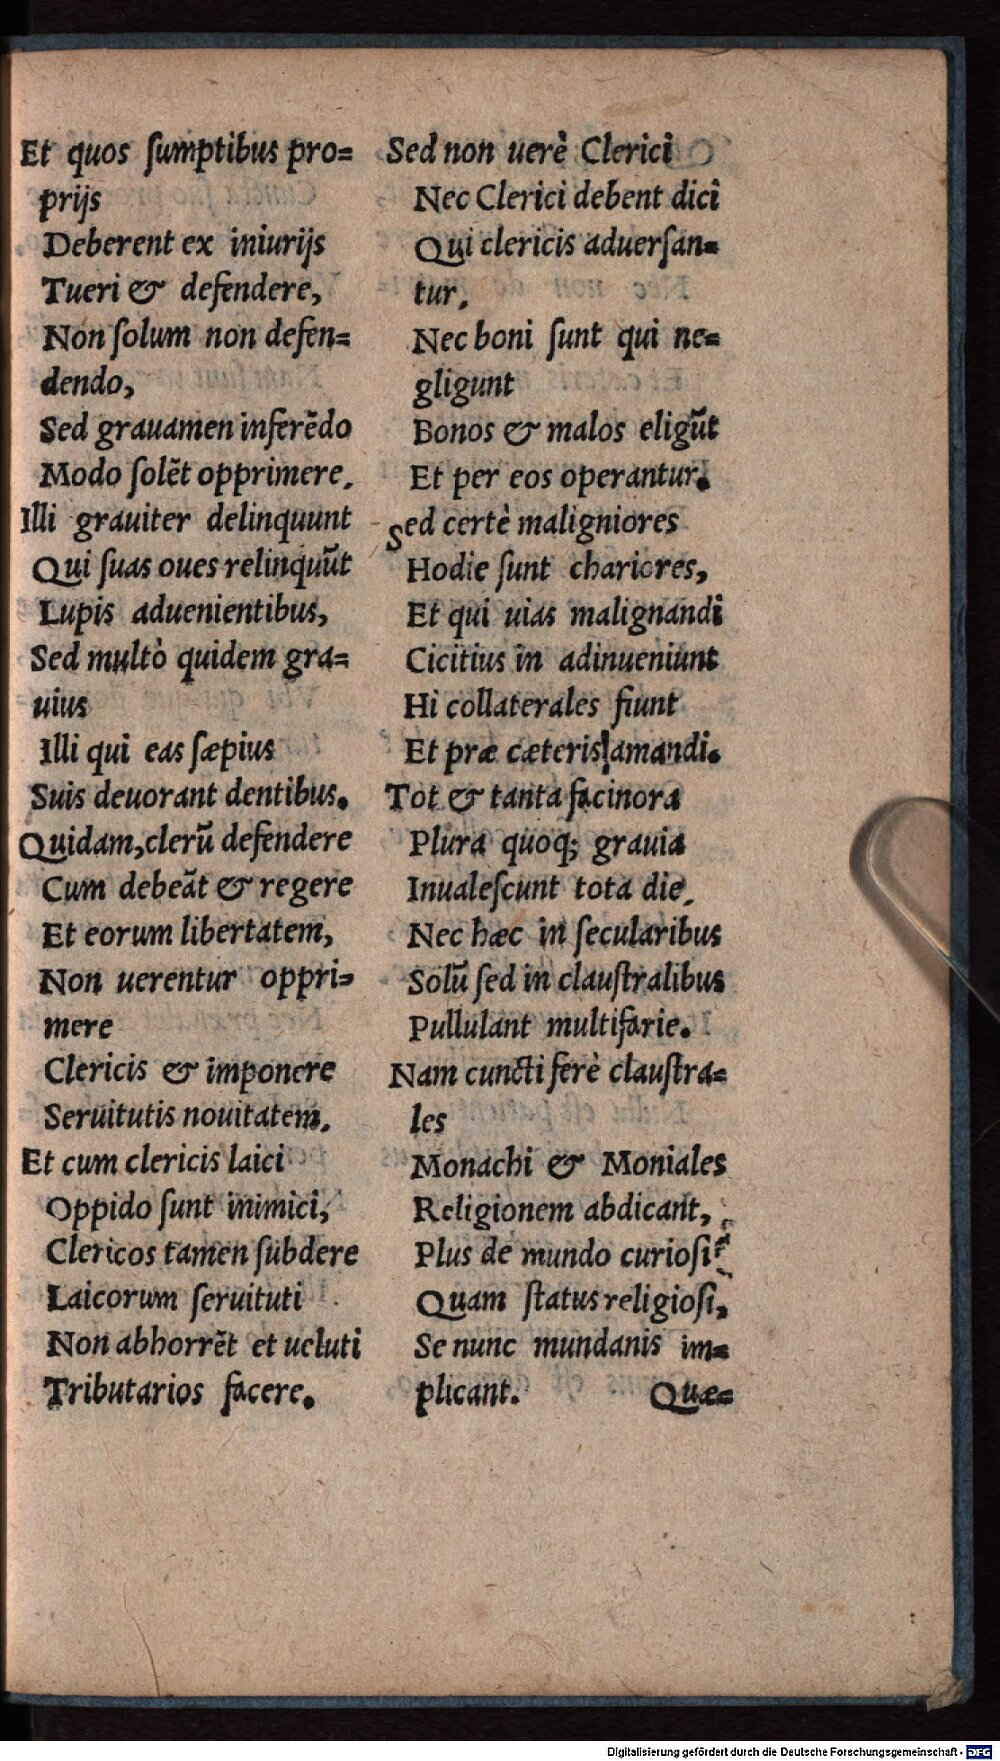 Et quos ſumptibus pro=
prijs
Deberent ex iniurijs
Tueri & defendere,
Non ſolum non defen=
dendo,
Sed grauamen inferẽdo
Modo ſolẽt opprimere.
Illi grauiter delinquunt
Qui ſuas oues relinquũt
Lupis aduenientibus,
Sed multò quidem gra=
uius
Illi qui eas ſæpius
Suis deuorant dentibus.
Quidam,clerũ defendere
Cum debeãt & regere
Et eorum libertatem,
Non uerentur oppri=
mere
Clericis & imponere
Seruitutis nouitatem.
Et cum clericis laici
Oppido ſunt inimici,
Clericos tamen ſubdere
Laicorum ſeruituti
Non abhorrẽt et ueluti
Tributarios facere.
Sed non uerè Clerici
Nec Clerici debent dici
Qui clericis aduerſan=
tur.
Nec boni ſunt qui ne=
gligunt
Bonos & malos eligũt
Et per eos operantur.
Sed certè maligniores
Hodie ſunt chariores,
Et qui uias malignandi
Cicitius in adinueniunt
Hi collaterales fiunt
Et præ cæteris amandi.
Tot & tanta facinora
Plura quoq; grauia
Inualeſcunt tota die.
Nec hæc in ſecularibus
Solũ ſed in clauſtralibus
Pullulant multifarie.
Nam cuncti ferè clauſtra=
les
Monachi & Moniales
Religionem abdicant,
Plus de mundo curioſi
Quam ſtatus religioſi,
Se nunc mundanis im=
plicant. Quæ=
Digitalisierung gefördert durch die Deutsche Forschungsgemeinschaft - DFG